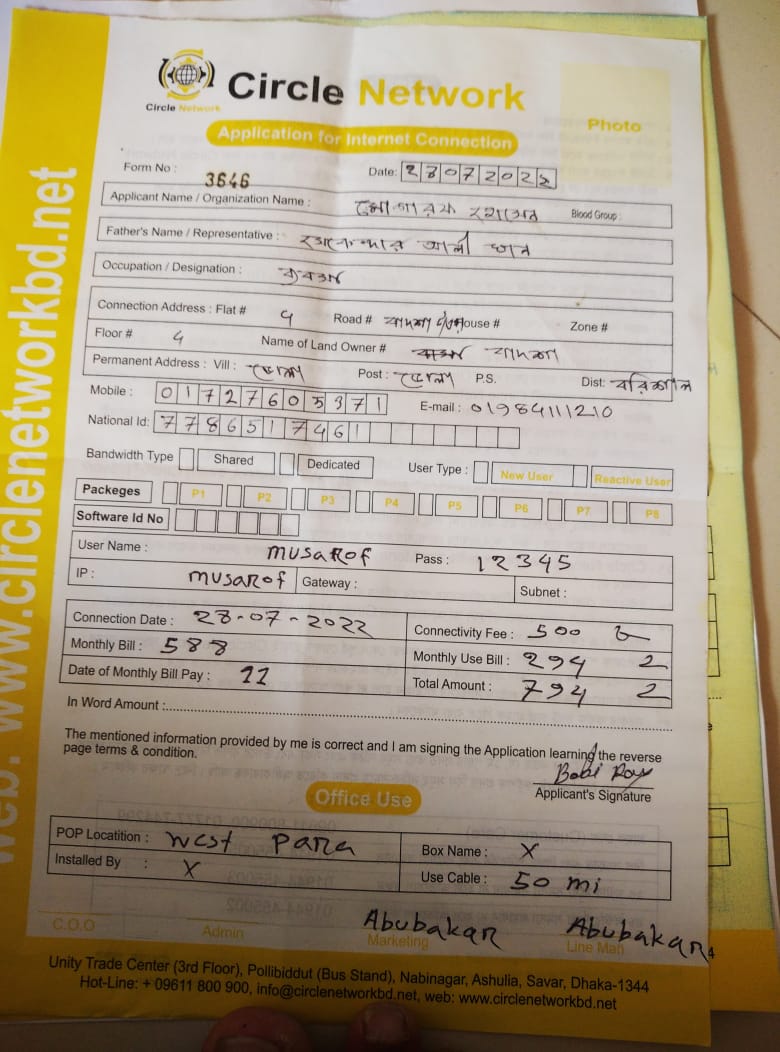 Circle Network
Circle Network
Application for Internet Connection
Photo
web: www.circlenetworkbd.net
Form No : 3646
Date: 28072022
Applicant Name / Organization Name : Blood Group :
Father's Name / Representative : আলী খান
Occupation / Designation :
Connection Address : Flat # 4 Road # House # Zone #
Floor # 4 Name of Land Owner #
Permanent Address : Vill : Post : P.S. Dist: বরিশাল
Mobile : 01727605371 E-mail : 01984111210
National Id: 7786517461
Bandwidth Type Shared Dedicated User Type : New User Reactive User
Packeges P1 P2 P3 P4 P5 P6 P7 P8
Software Id No
User Name : MUSAROF Pass : 12345
IP : MUSAROF Gateway : Subnet :
Connection Date : 28-07-2022 Connectivity Fee : 500
Monthly Bill : 588 Monthly Use Bill : 294
Date of Monthly Bill Pay : 11 Total Amount : 794
In Word Amount :
The mentioned information provided by me is correct and I am signing the Application learning the reverse
page terms & condition.
Bobi Roy
Applicant's Signature
Office Use
POP Locatition : West Para Box Name : X
Installed By : X Use Cable : 50 mi
Abubakar Abubakar
C.O.O Admin Marketing Line Man
Unity Trade Center (3rd Floor), Pollibiddut (Bus Stand), Nabinagar, Ashulia, Savar, Dhaka-1344
Hot-Line: + 09611 800 900, info@circlenetworkbd.net, web: www.circlenetworkbd.net